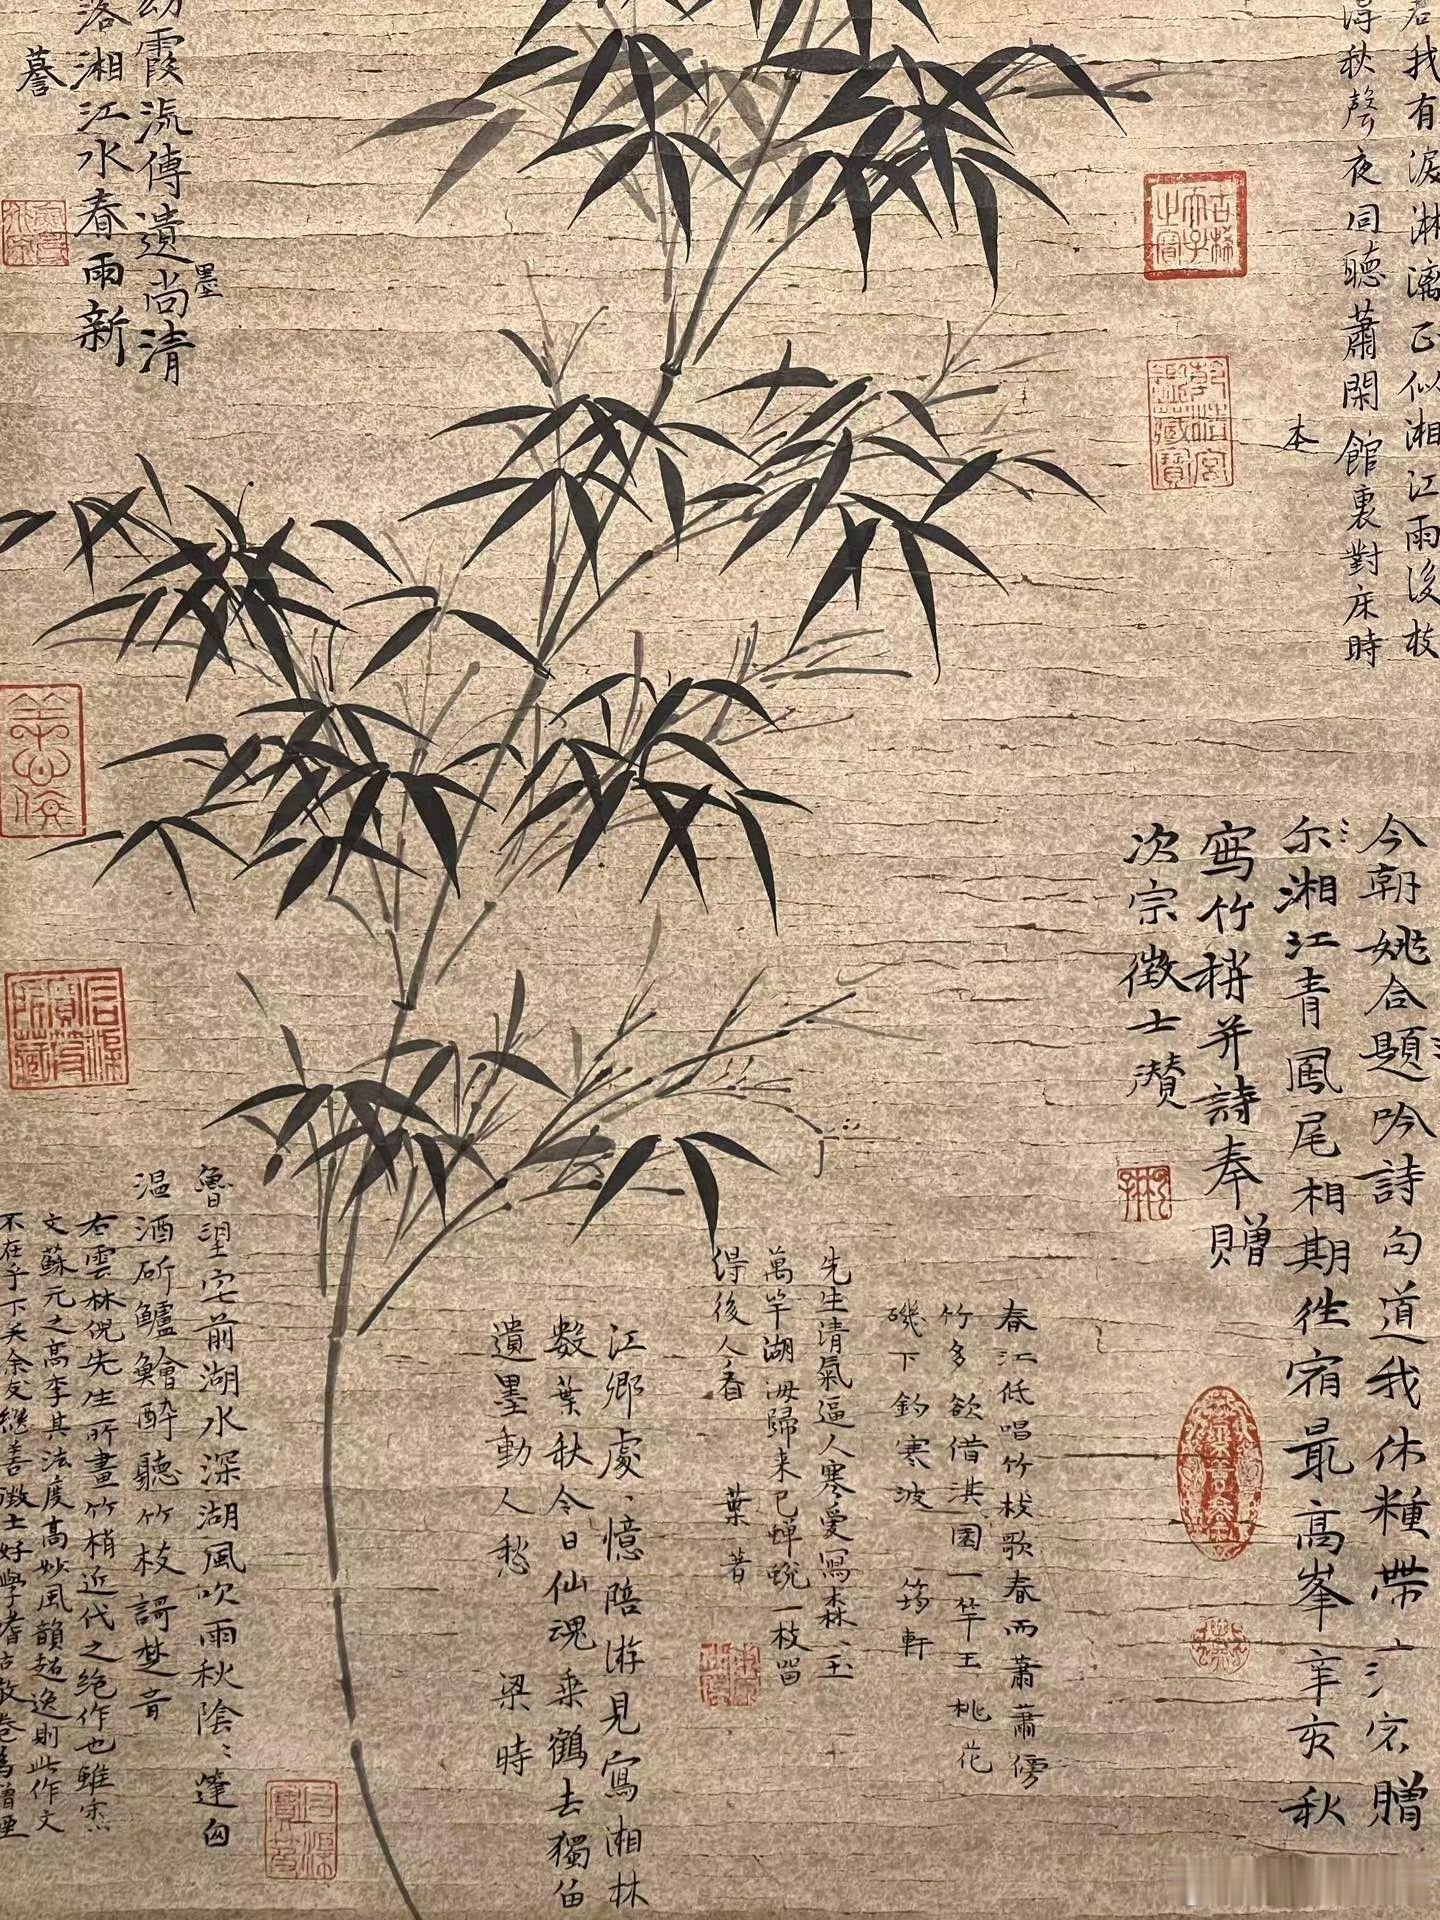 君我有淚淋漓正似湘江雨後枝
得秋聲夜同聽蕭閑館裏對床時
本
今朝姚合題吟詩句道我休糧帶
贈
尔湘江青鳳尾相期往宿最高峯辛亥秋
寫竹梢并詩奉贈
次宗徵士瓚
霞流傳遺墨尚清
落湘江水春雨新
謩
春江低唱竹枝歌春雨蕭蕭傍
竹多欲借淇園一竿玉桃花
磯下釣寒波 筠軒
先生清氣逼人寒愛寫森森玉
萬竿湖海歸来已蟬蛻一枝留
得後人看 葉著
江鄉處處憶陪游見寫湘林
数葉秋今日仙魂乘鶴去獨留
遺墨動人愁 梁時
魯望宅前湖水深湖風吹雨秋陰陰篷白
温酒斫鱸鱠酔聽竹枝謌楚音
右雲林倪先生所畫竹梢近代之絶作也雖
文蘇元之高李其法度高妙風韻超逸則此作文
不在乎下矣余友繼善徵士好學